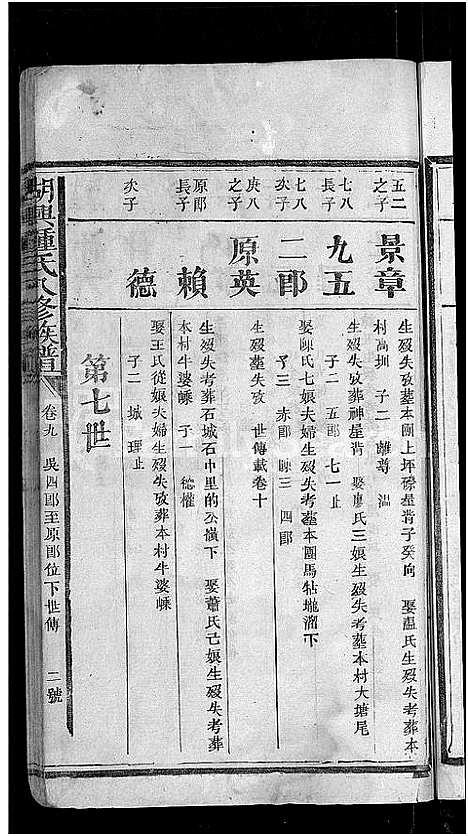 五二之子
景章
生歿失攷葬本團上坪磜星背子癸向 娶藍氏生歿失考葬本
村高圳 子二 離尊 溫
七八長子
九五
生歿失攷葬神星背 娶廖氏三娘生歿失考葬本村大塘尾
子二 五郎 七一 止
七八次子
二郎
娶陳氏七娘夫婦生歿失考墓本團馬牯壠溜下
子三 赤郎 陳三 四郎
庚八之子
原英
生歿墓失攷 世傳載卷十
原郎長子
賴
生歿失考葬石城石中里的公嶺下 娶蕭氏己娘生歿失考葬
本村牛婆嵊 子一 德權
次子
德
娶王氏從娘夫婦生歿失攷葬本村牛婆嵊
子二 城 理 止
第七世
鍾氏八修族譜 卷九 吳四郎至原郎位下世傳 二號